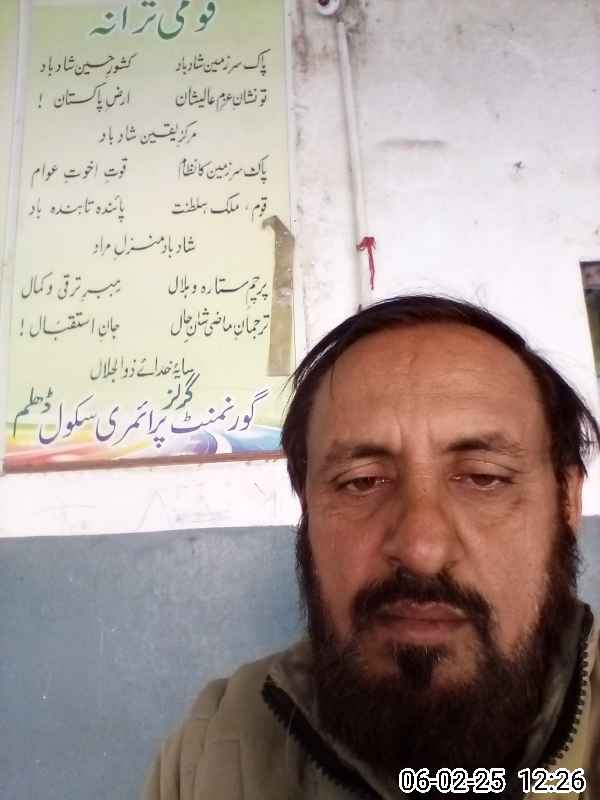 قومی ترانہ
پاک سرزمین شادباد کشور حسین شادباد
تو نشانِ عزمِ عالیشان ارضِ پاکستان !
مرکزِ یقین شادباد
پاک سرزمین کا نظام قوتِ اخوتِ عوام
قوم ، ملک ، سلطنت پائندہ تابندہ باد
شادباد منزلِ مراد
پرچمِ ستارہ و ہلال رہبرِ ترقی و کمال
ترجمانِ ماضی شانِ حال جانِ استقبال !
سایۂ خدائے ذوالجلال
گورنمنٹ گرلز پرائمری سکول ڈھلم
06-02-25 12:26